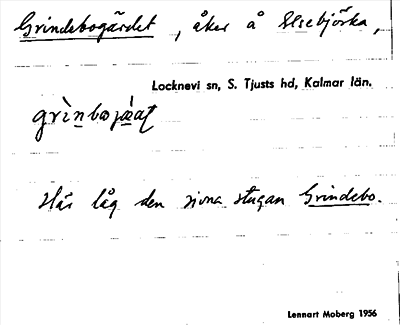 Grindebogärdet, åker å Elsebjörka,
Locknevi sn, S. Tjusts hd, Kalmar län.
Här låg den rivna stugan Grindebo.
Lennart Moberg 1956